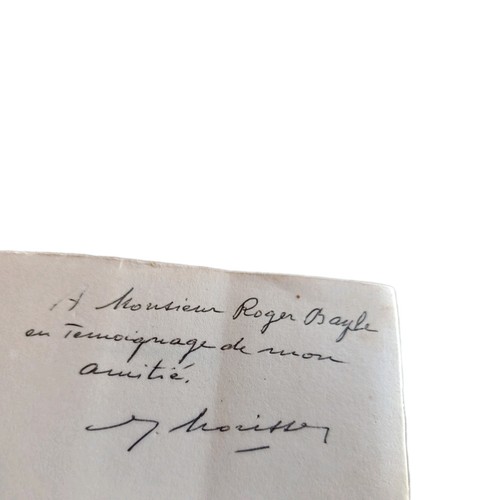 A Monsieur Roger Bayle
en Temoignage de mon
amitié.